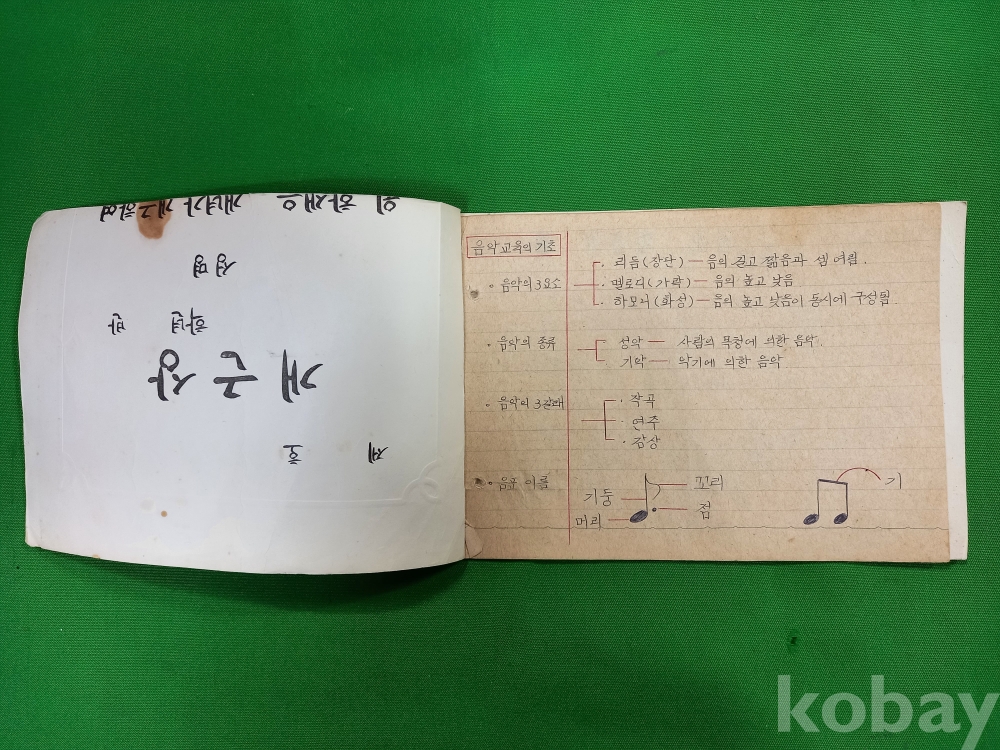 제 호
개근상
학년 반
성명
위 학생은 개년간 개근하여
음악교육의 기초
· 음악의 3요소
· 리듬(장단) — 음의 길고 짧음과 셈 여림.
· 멜로디(가락) — 음의 높고 낮음
· 하모니(화성) — 음의 높고 낮음이 동시에 구성됨.
· 음악의 종류
성악 — 사람의 목청에 의한 음악.
기악 — 악기에 의한 음악
· 음악의 3갈래
· 작곡
· 연주
· 감상
· 음표 이름
기둥
머리
꼬리
점
기
kobay